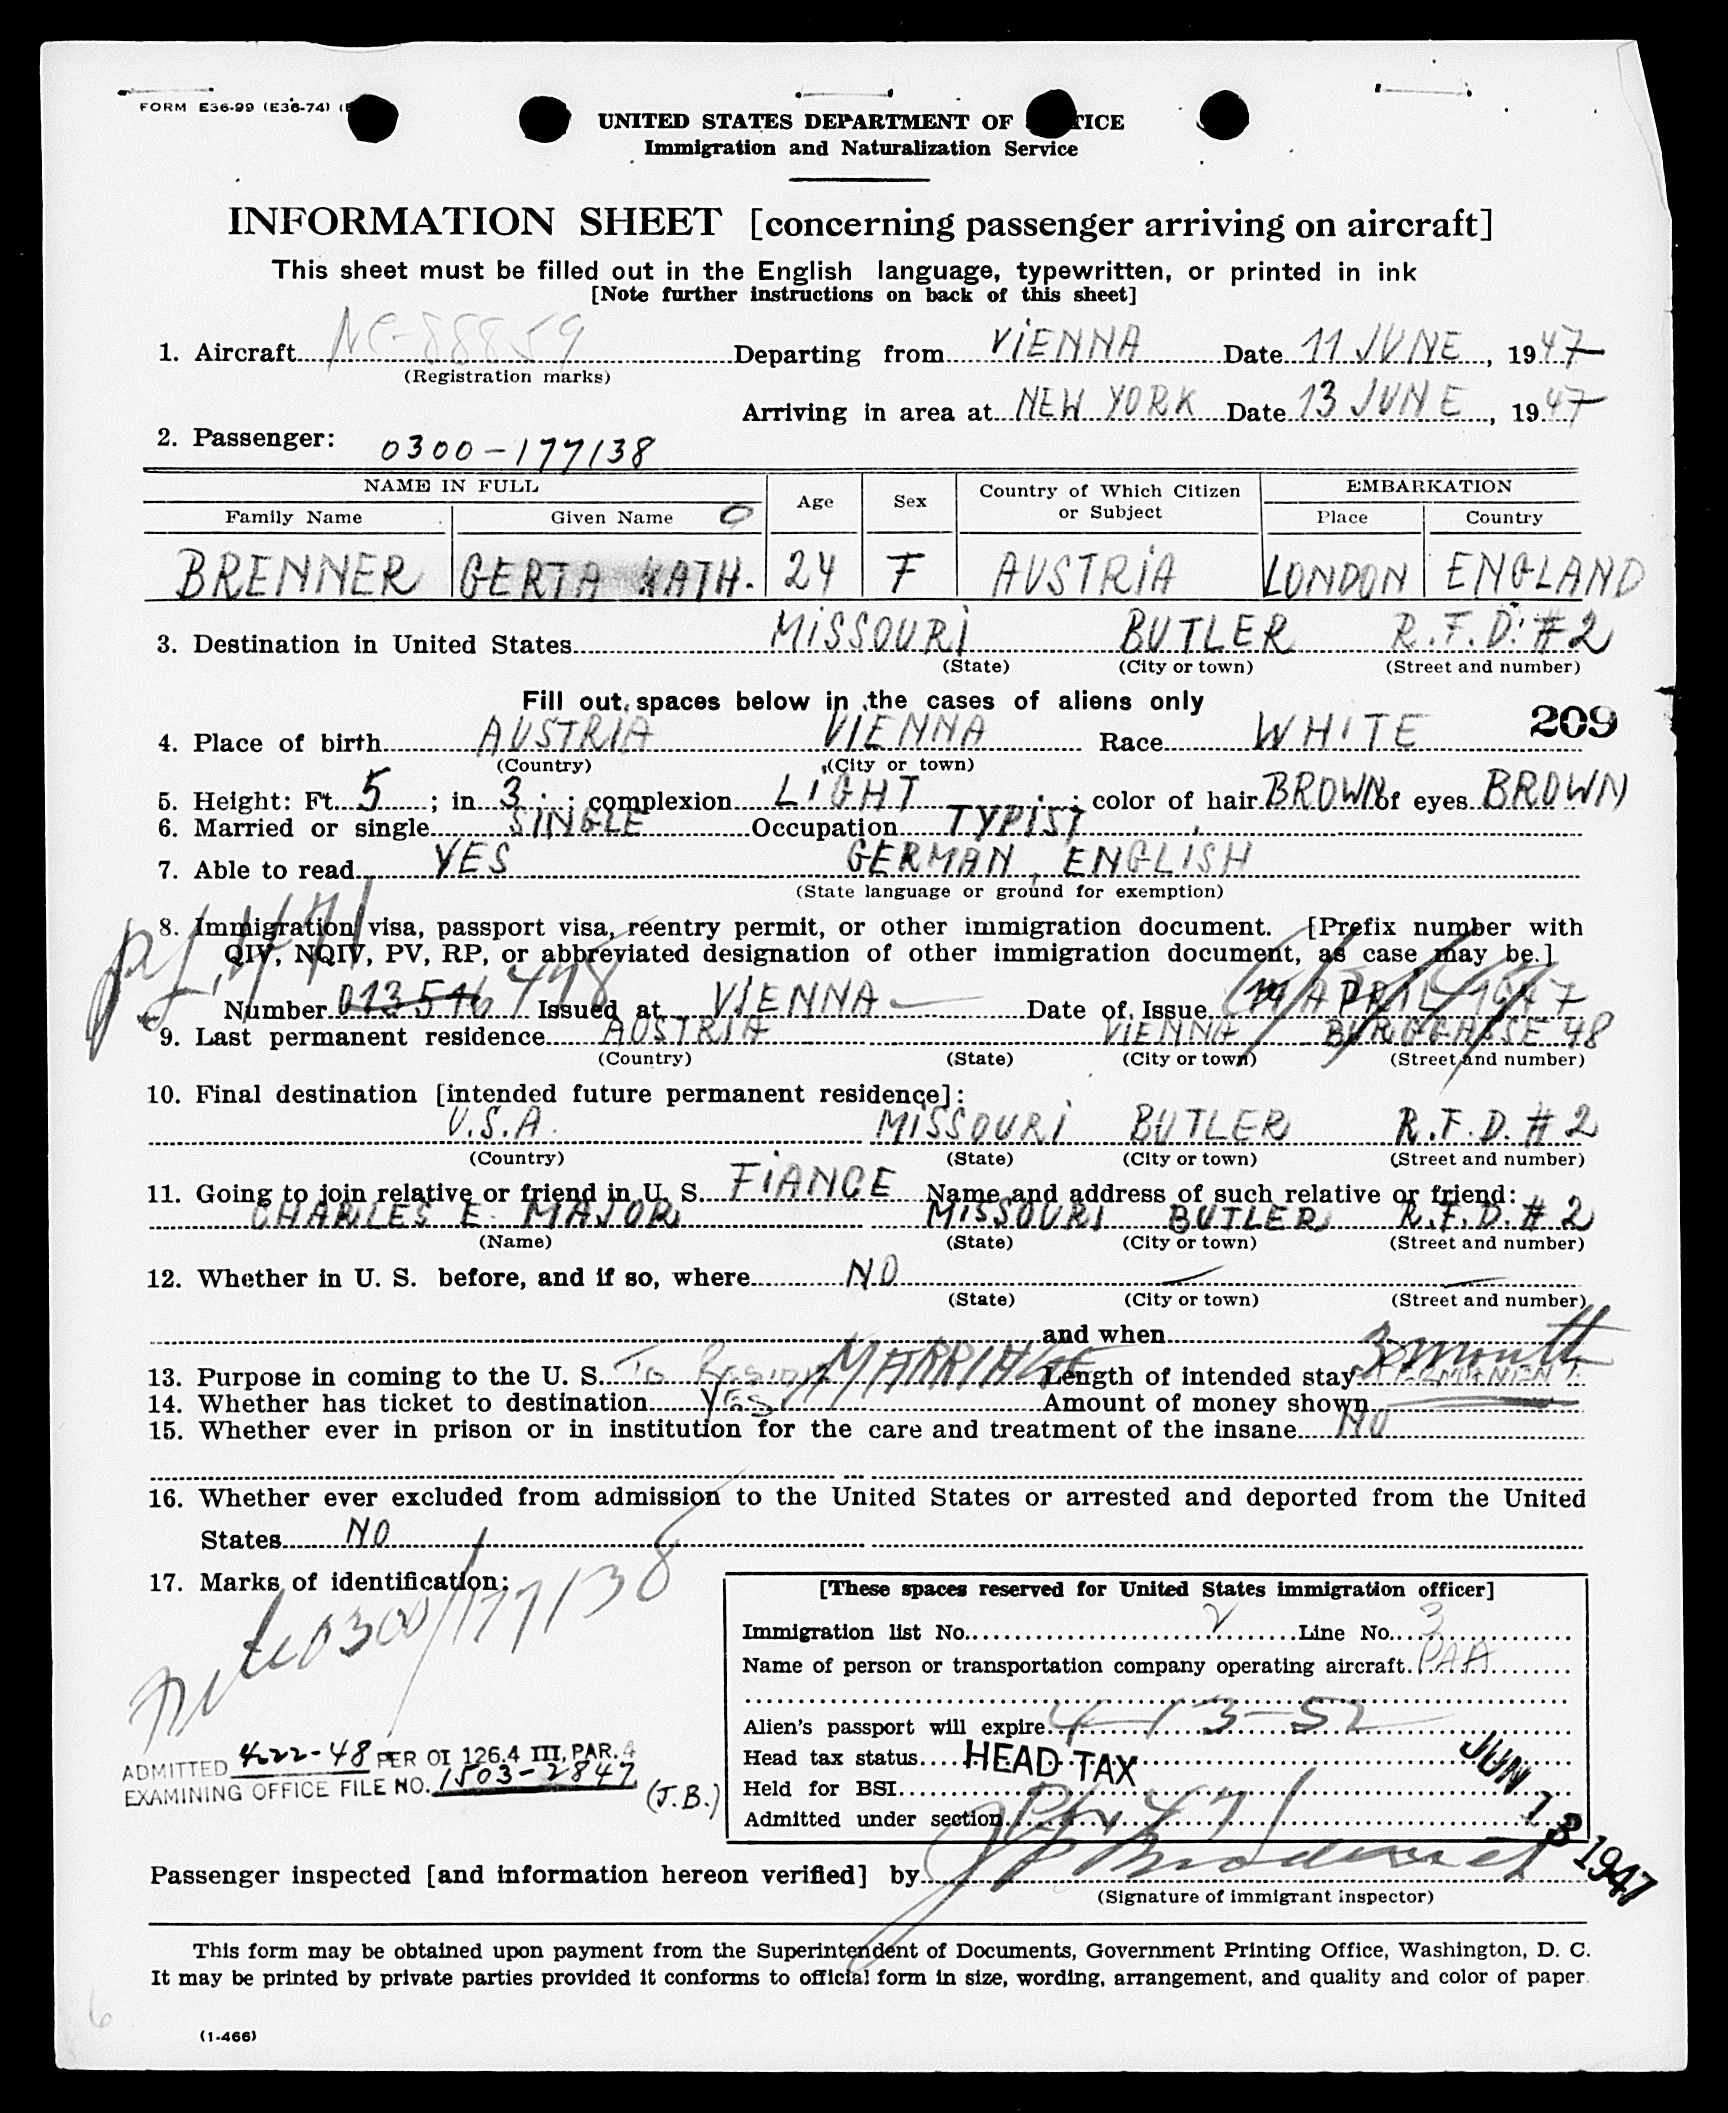 FORM E36-99 (E36-74)
UNITED STATES DEPARTMENT OF TICE
Immigration and Naturalization Service
INFORMATION SHEET [concerning passenger arriving on aircraft]
This sheet must be filled out in the English language, typewritten, or printed in ink
[Note further instructions on back of this sheet]
1. Aircraft NC-88859 Departing from VIENNA Date 11 JUNE, 1947
(Registration marks)
Arriving in area at NEW YORK Date 13 JUNE, 1947
2. Passenger: 0300-177138
NAME IN FULL Age Sex Country of Which Citizen or Subject EMBARKATION
Family Name Given Name Place Country
BRENNER GERTA KATH. 24 F AUSTRIA LONDON ENGLAND
3. Destination in United States MISSOURI BUTLER R.F.D. #2
(State) (City or town) (Street and number)
Fill out spaces below in the cases of aliens only
209
4. Place of birth AUSTRIA VIENNA Race WHITE
(Country) (City or town)
5. Height: Ft. 5; in 3; complexion LIGHT; color of hair BROWN of eyes BROWN
6. Married or single SINGLE Occupation TYPIST
7. Able to read YES GERMAN, ENGLISH
(State language or ground for exemption)
8. Immigration visa, passport visa, reentry permit, or other immigration document. [Prefix number with
QIV, NQIV, PV, RP, or abbreviated designation of other immigration document, as case may be.]
Number 013546 478 Issued at VIENNA Date of Issue 14 APRIL 1947
9. Last permanent residence AUSTRIA VIENNA BURGGASSE 48
(Country) (State) (City or town) (Street and number)
10. Final destination [intended future permanent residence]:
U.S.A. MISSOURI BUTLER R.F.D. #2
(Country) (State) (City or town) (Street and number)
11. Going to join relative or friend in U. S. FIANCE Name and address of such relative or friend:
CHARLES E. MAJOR MISSOURI BUTLER R.F.D. #2
(Name) (State) (City or town) (Street and number)
12. Whether in U. S. before, and if so, where NO
(State) (City or town) (Street and number)
and when
13. Purpose in coming to the U. S. To RESIDE MARRIAGE Length of intended stay 3 month PERMANENT
14. Whether has ticket to destination YES Amount of money shown
15. Whether ever in prison or in institution for the care and treatment of the insane NO
16. Whether ever excluded from admission to the United States or arrested and deported from the United
States NO
17. Marks of identification:
0300/177138
ADMITTED 4-22-48 PER OI 126.4 III, PAR. 4
EXAMINING OFFICE FILE NO. 1503-2847 (J.B.)
[These spaces reserved for United States immigration officer]
Immigration list No. 2 Line No. 3
Name of person or transportation company operating aircraft PAA
Alien's passport will expire 4-13-52
Head tax status HEAD TAX
Held for BSI
Admitted under section
JUN 13 1947
Passenger inspected [and information hereon verified] by
(Signature of immigrant inspector)
This form may be obtained upon payment from the Superintendent of Documents, Government Printing Office, Washington, D. C.
It may be printed by private parties provided it conforms to official form in size, wording, arrangement, and quality and color of paper.
6
(1-466)